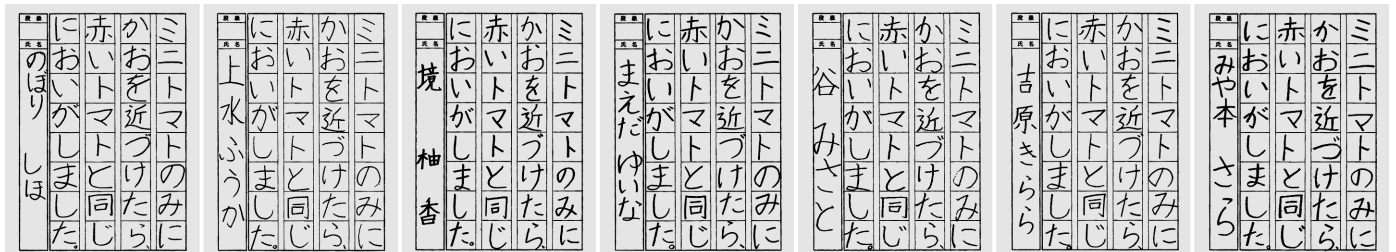 ミニトマトのみに
かおを近づけたら、
赤いトマトと同じ
においがしました。
段級
氏名 のぼり しほ
ミニトマトのみに
かおを近づけたら、
赤いトマトと同じ
においがしました。
段級
氏名 上水ふうか
ミニトマトのみに
かおを近づけたら、
赤いトマトと同じ
においがしました。
段級
氏名 境 柚香
ミニトマトのみに
かおを近づけたら、
赤いトマトと同じ
においがしました。
段級
氏名 まえだ ゆいな
ミニトマトのみに
かおを近づけたら、
赤いトマトと同じ
においがしました。
段級
氏名 谷 みさと
ミニトマトのみに
かおを近づけたら、
赤いトマトと同じ
においがしました。
段級
氏名 吉原きらら
ミニトマトのみに
かおを近づけたら、
赤いトマトと同じ
においがしました。
段級
氏名 みや本 さら